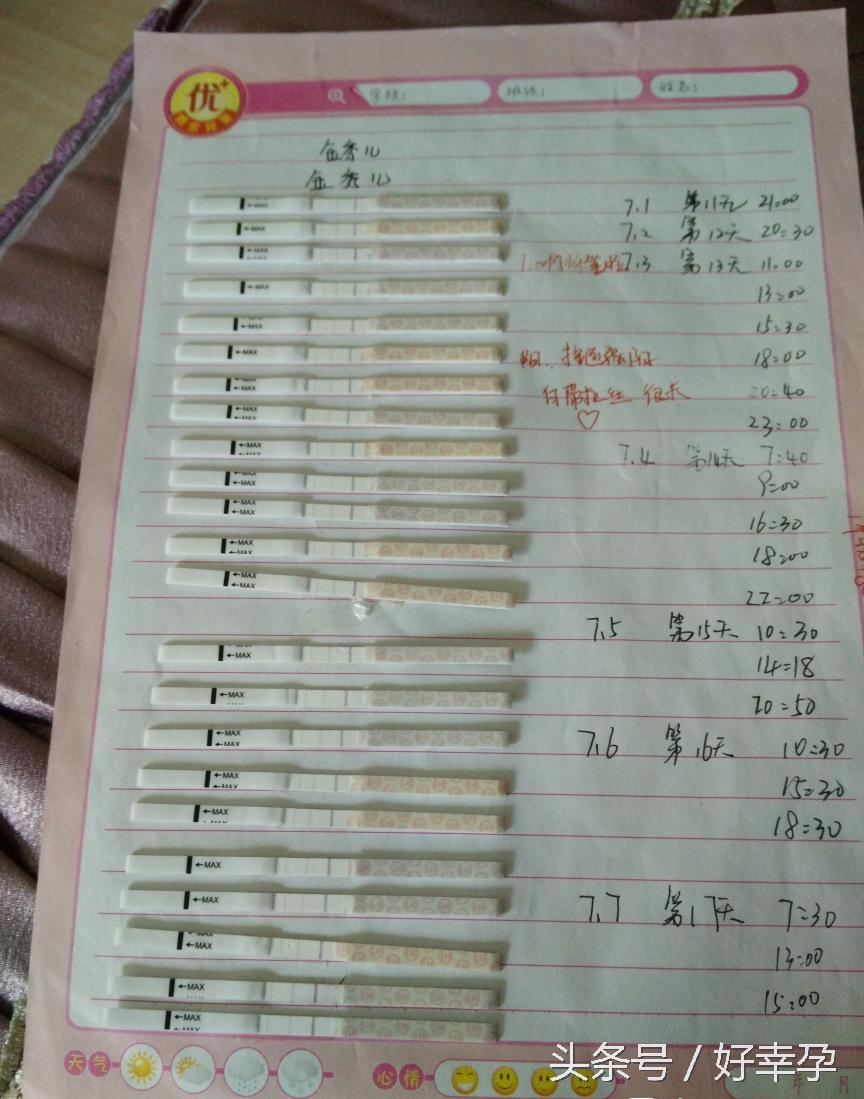 优+
学校：
班级：
姓名：
金秀儿
金秀儿
←MAX 7.1 第11天 21:00
←MAX 7.2 第12天 20:30
←MAX 7.3 第13天 11:00
←MAX 13:00
←MAX 15:30
←MAX 18:00
←MAX 20:40
很
♡
←MAX 23:00
←MAX 7.4 第14天 7:40
←MAX 9:00
←MAX 16:30
←MAX 18:00
←MAX
←MAX 22:00
7.5 第15天 10:30
←MAX 14:18
←MAX 20:50
←MAX 7.6 第16天 10:30
←MAX 15:30
←MAX 18:30
←MAX
←MAX 7.7 第17天 7:30
←MAX 13:00
←MAX 15:00
←MAX
天气
心情
年 月
头条号 / 好幸孕